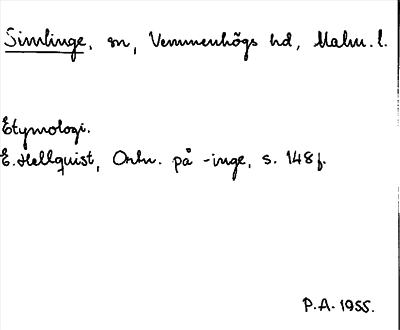 Simlinge, sn, Vemmenhögs hd, Malm. l.
Etymologi.
E. Hellquist, Ortn. på -inge, s. 148 f.
P.A. 1955.